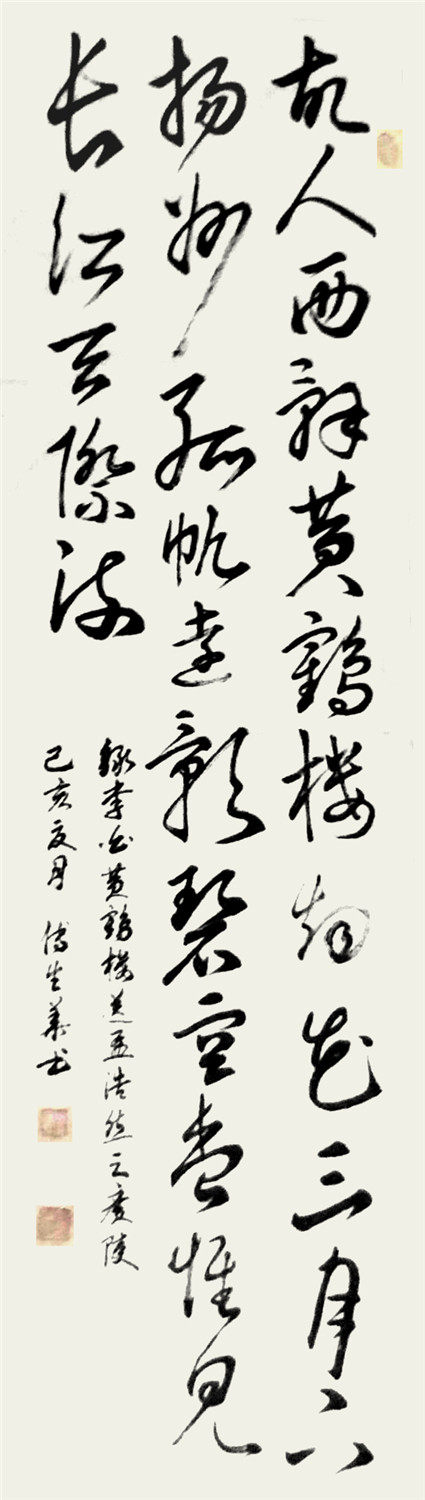 故人西辞黄鹤楼烟花三月下
扬州孤帆远影碧空尽惟见
长江天际流
录李白黄鹤楼送孟浩然之广陵
己亥夏月 傅生华书